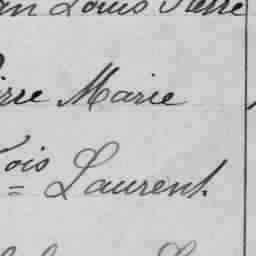 an Louis Pierre
ierre Marie
çois Laurent.